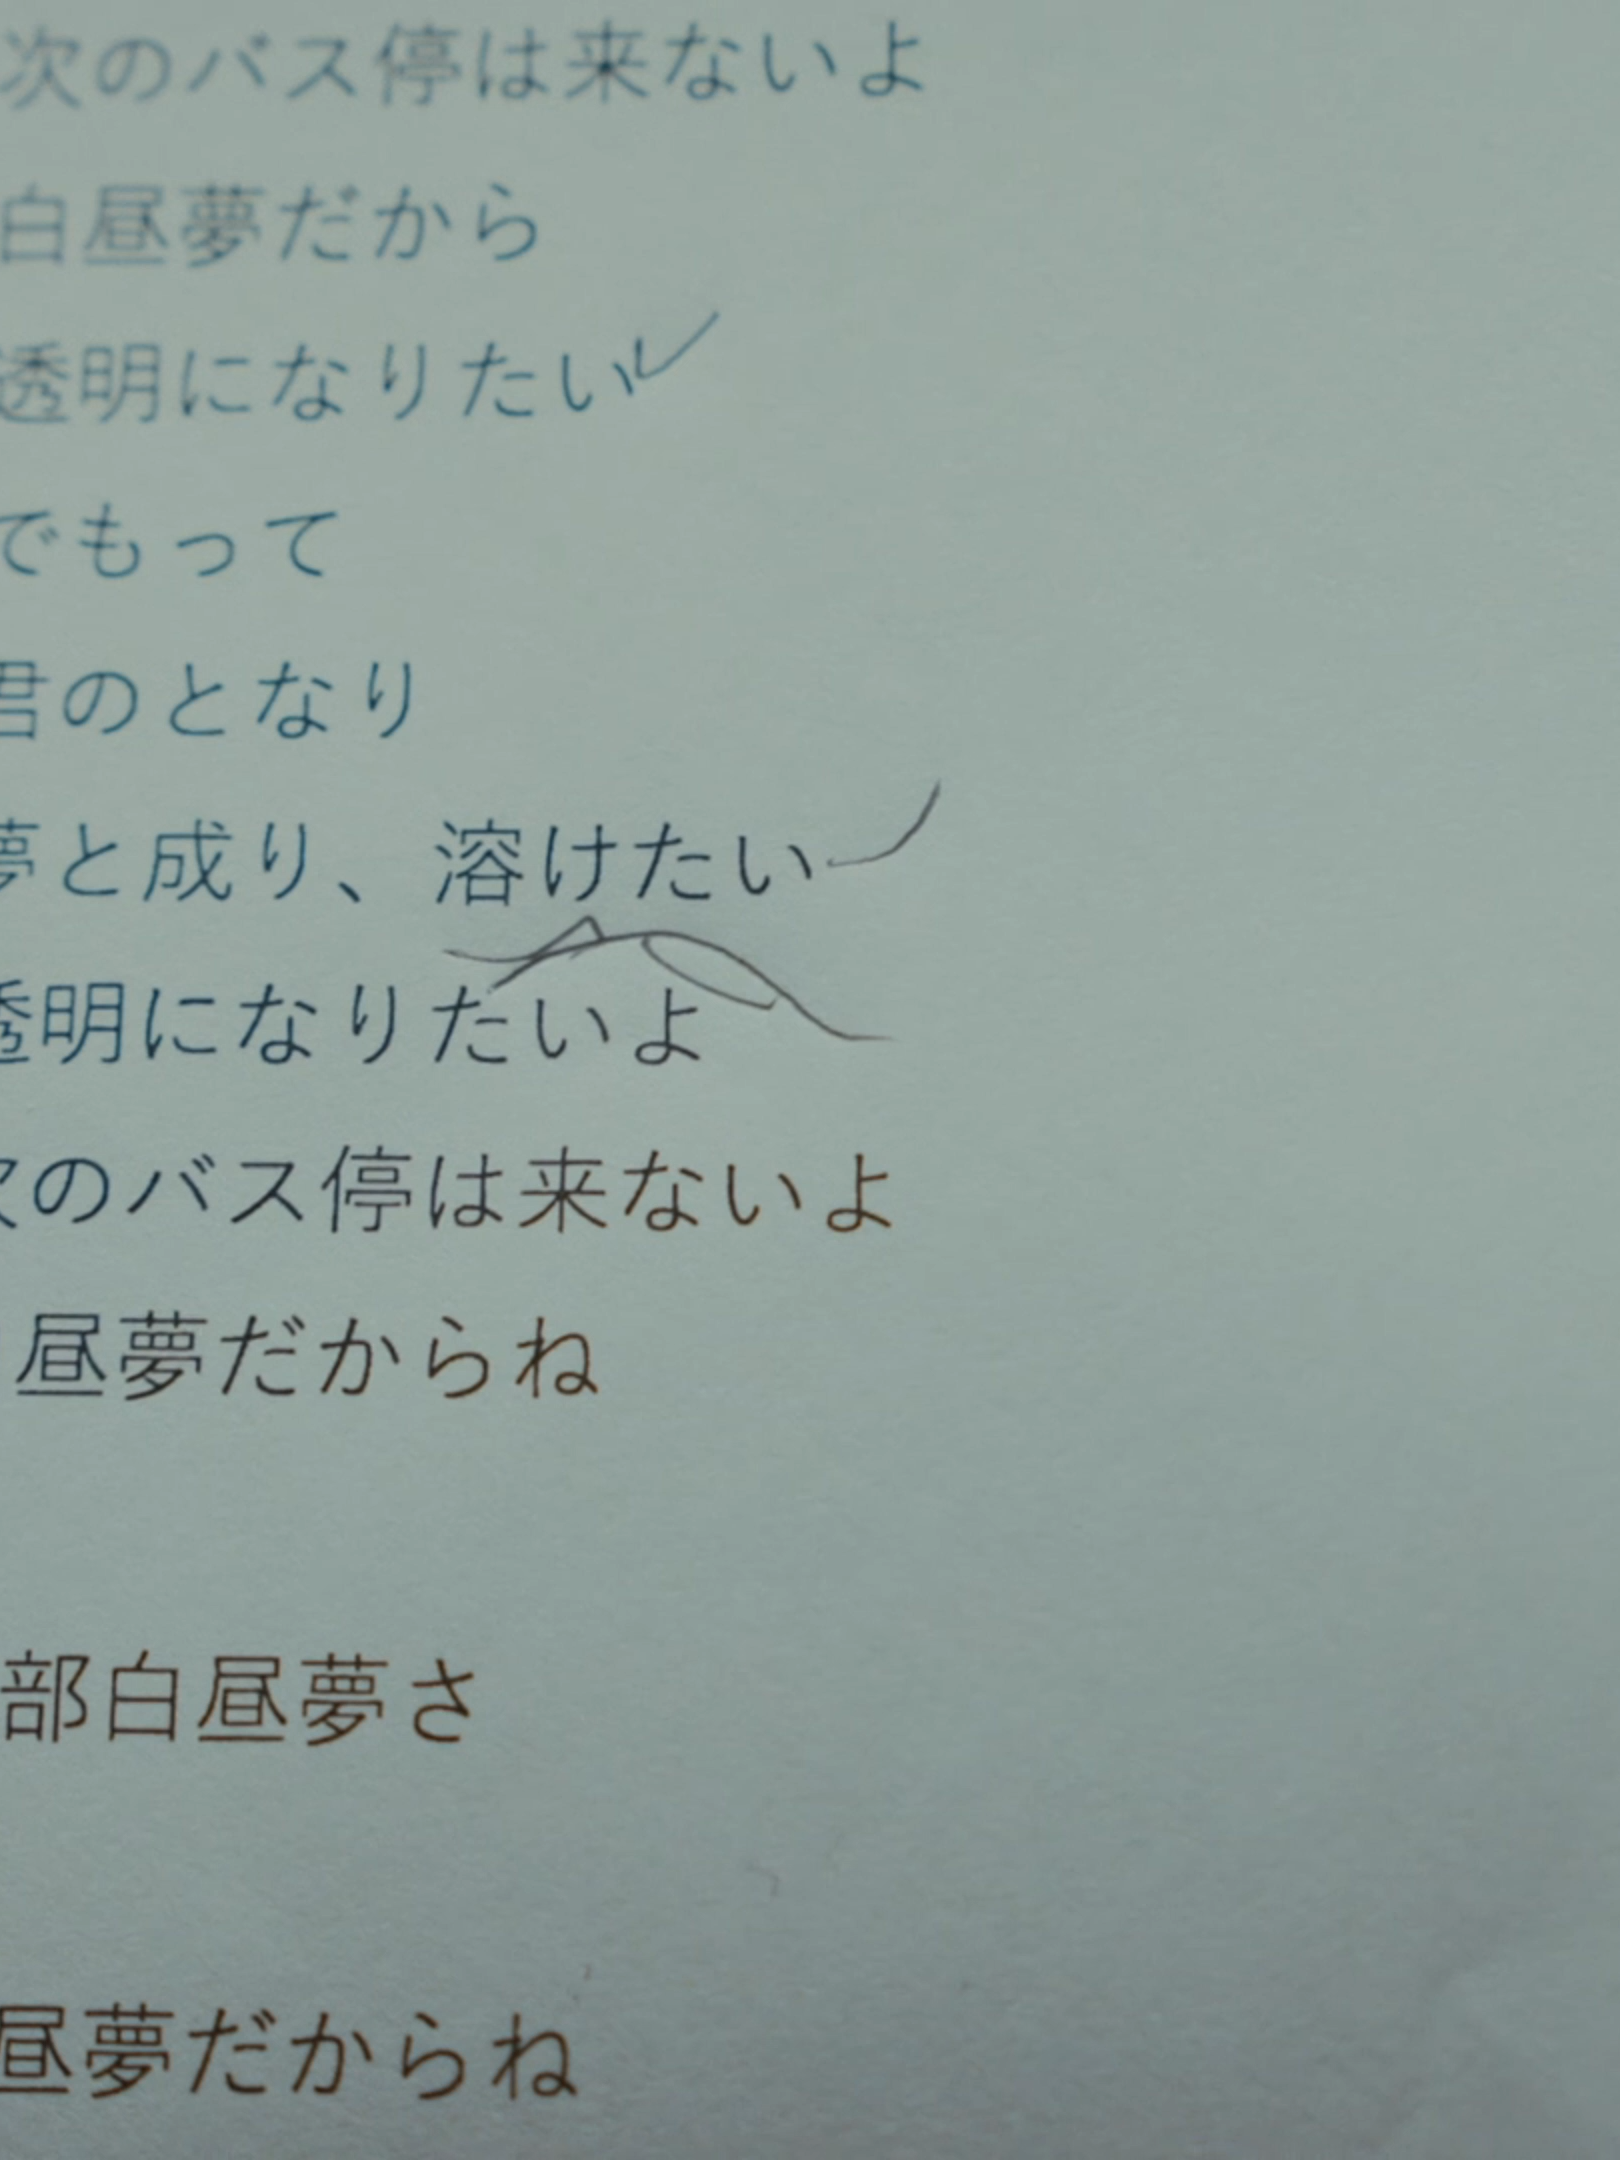 次のバス停は来ないよ
白昼夢だから
透明になりたい
でもって
君のとなり
夢と成り、溶けたい
透明になりたいよ
次のバス停は来ないよ
昼夢だからね
部白昼夢さ
昼夢だからね